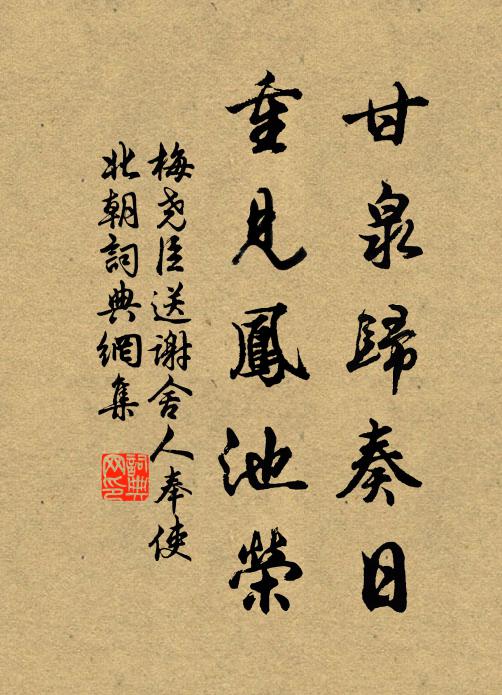 甘泉歸奏日
重見鳳池榮
梅堯臣送謝舍人奉使
北朝詞典網集
詞典
网印